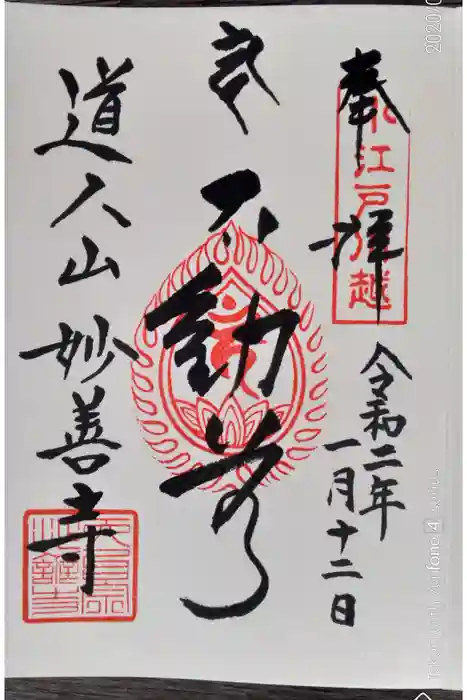 奉拝
小江戸川越
令和二年
一月十二日
不動尊
道人山妙善寺
2020/0